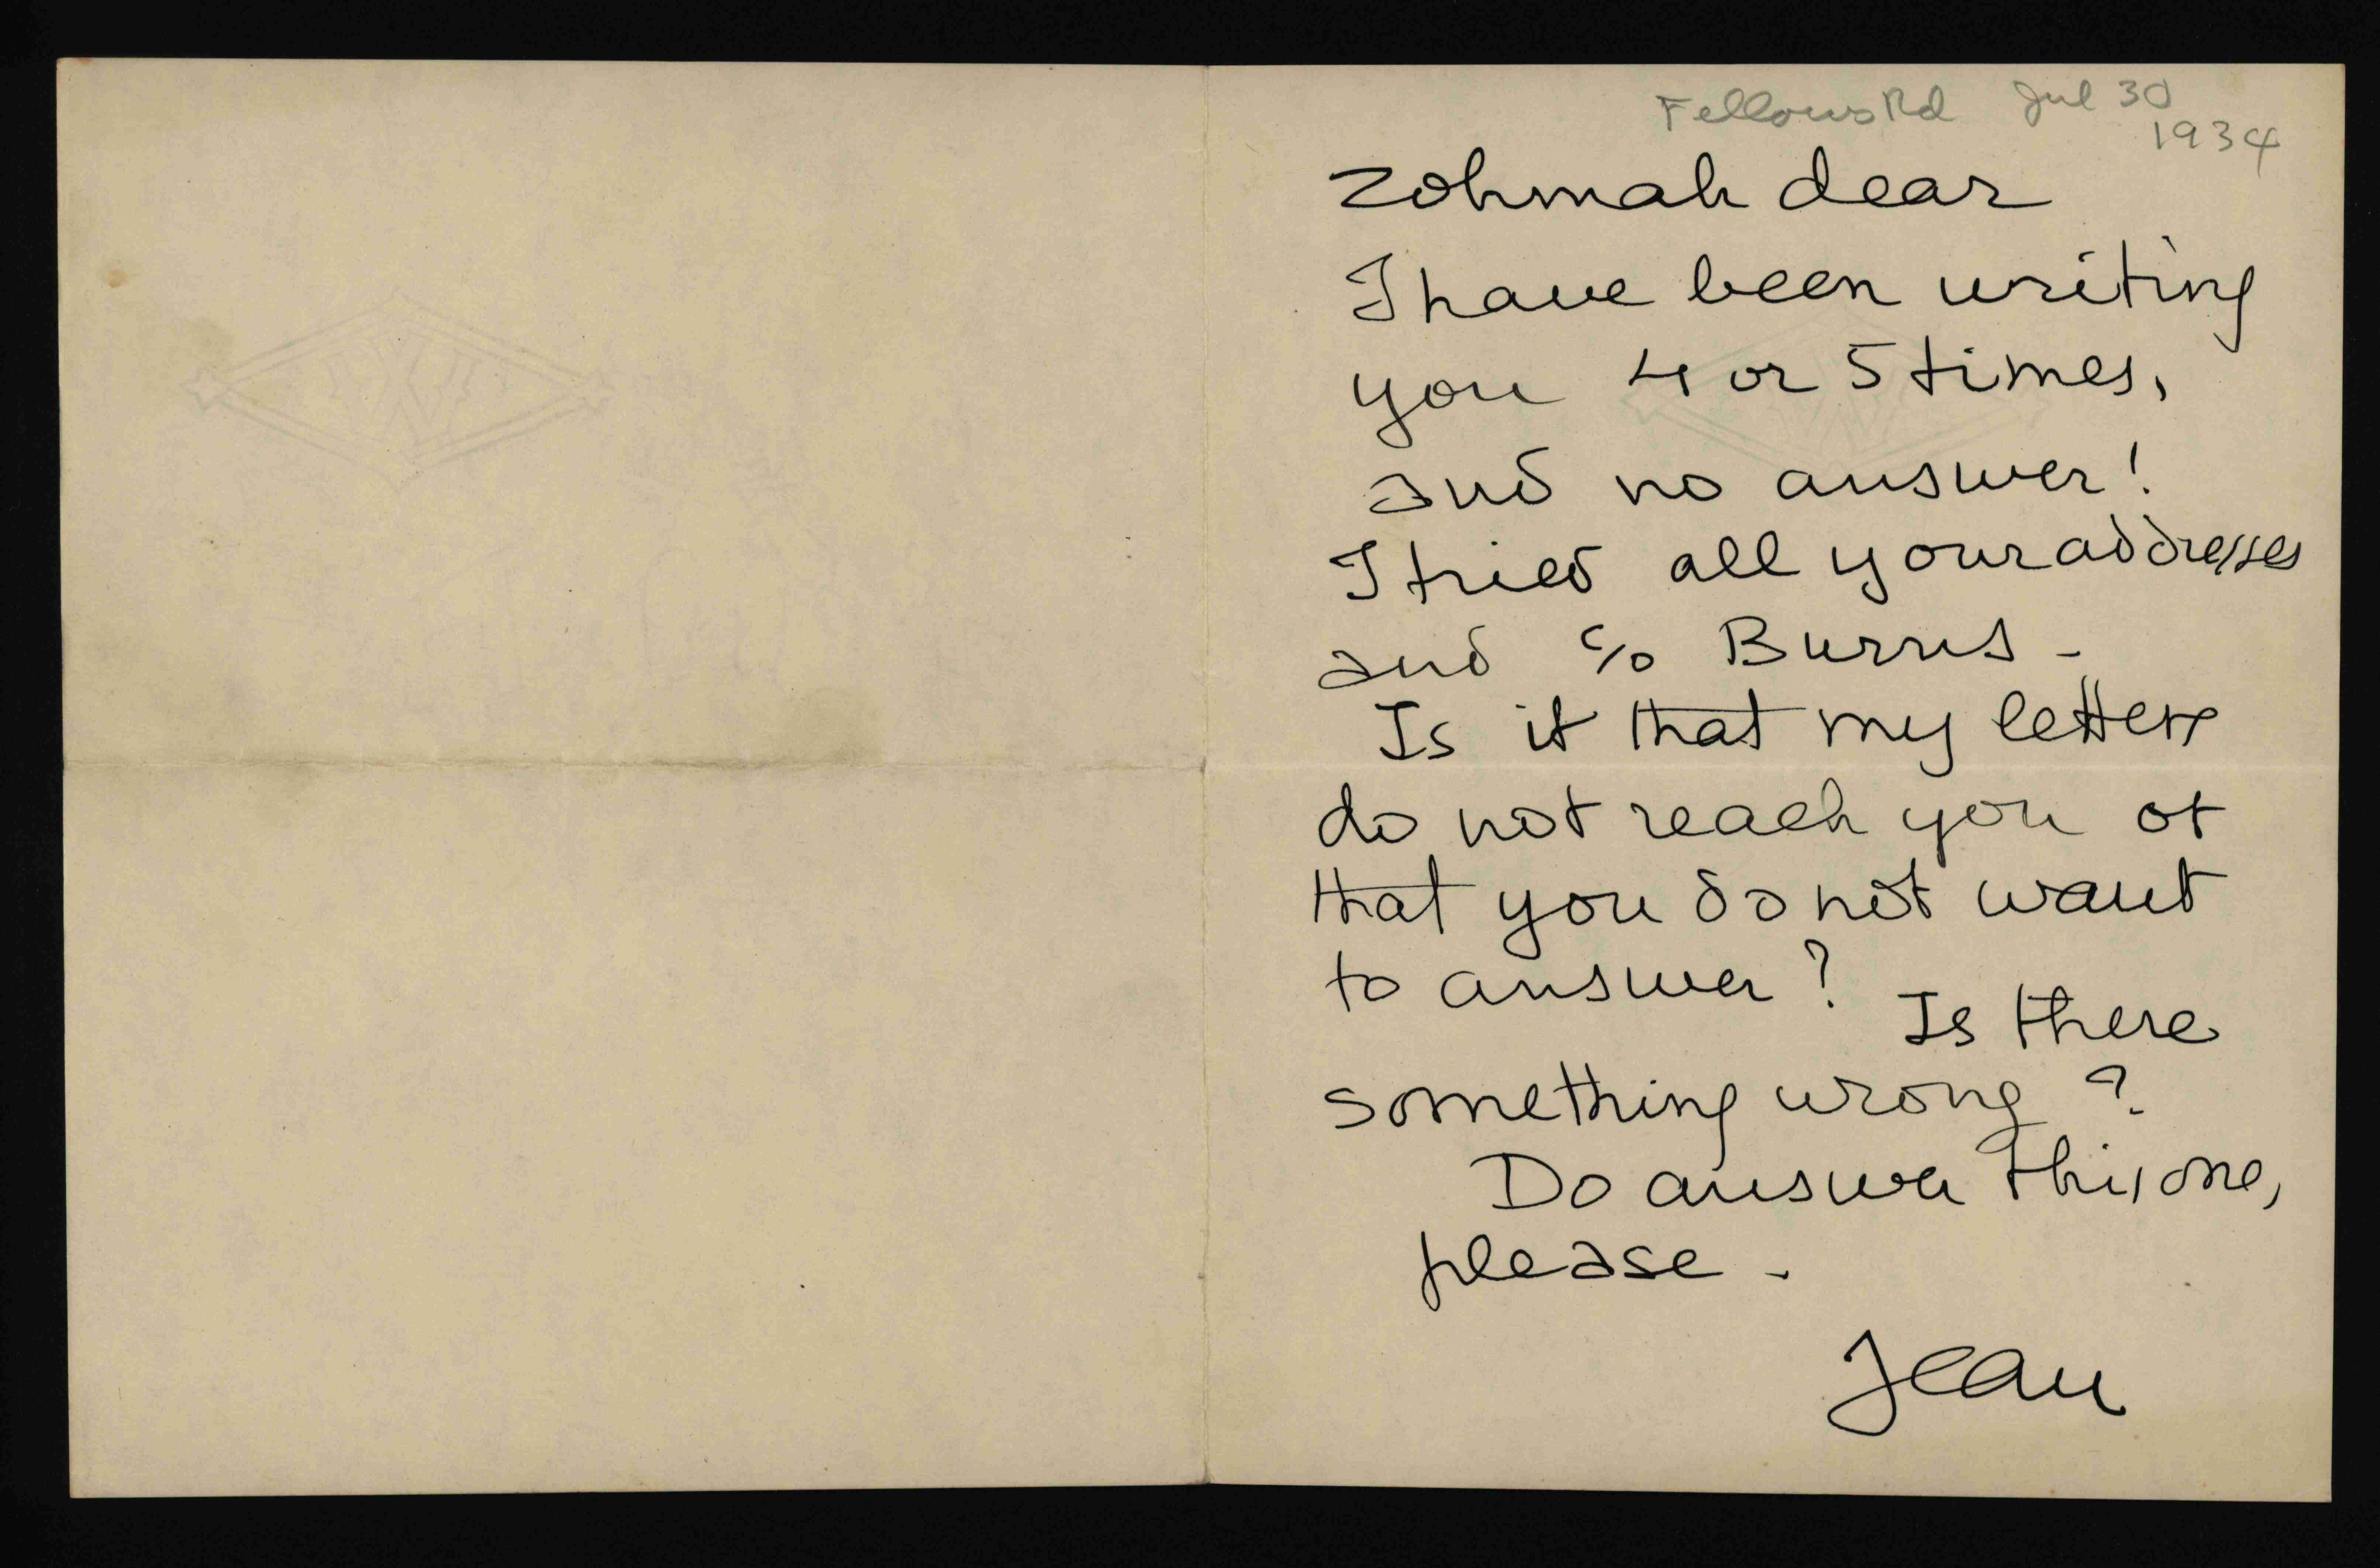 Fellows Rd Jul 30
1934
Zohmah dear
I have been writing
you 4 or 5 times,
and no answer!
I tried all your addresses
and c/o Burrus -
Is it that my letters
do not reach you or
that you do not want
to answer? Is there
something wrong?
Do answer this one,
please -
Jean
W
W